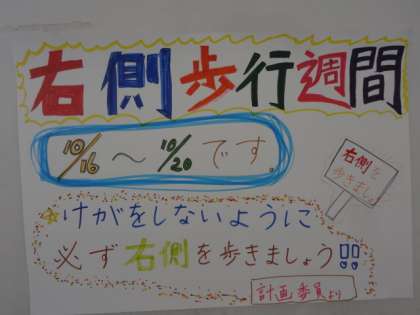 右側歩行週間
10/16～10/20です。
右側を
歩きましょう
けがをしないように
必ず右側を歩きましょう!!
計画委員より